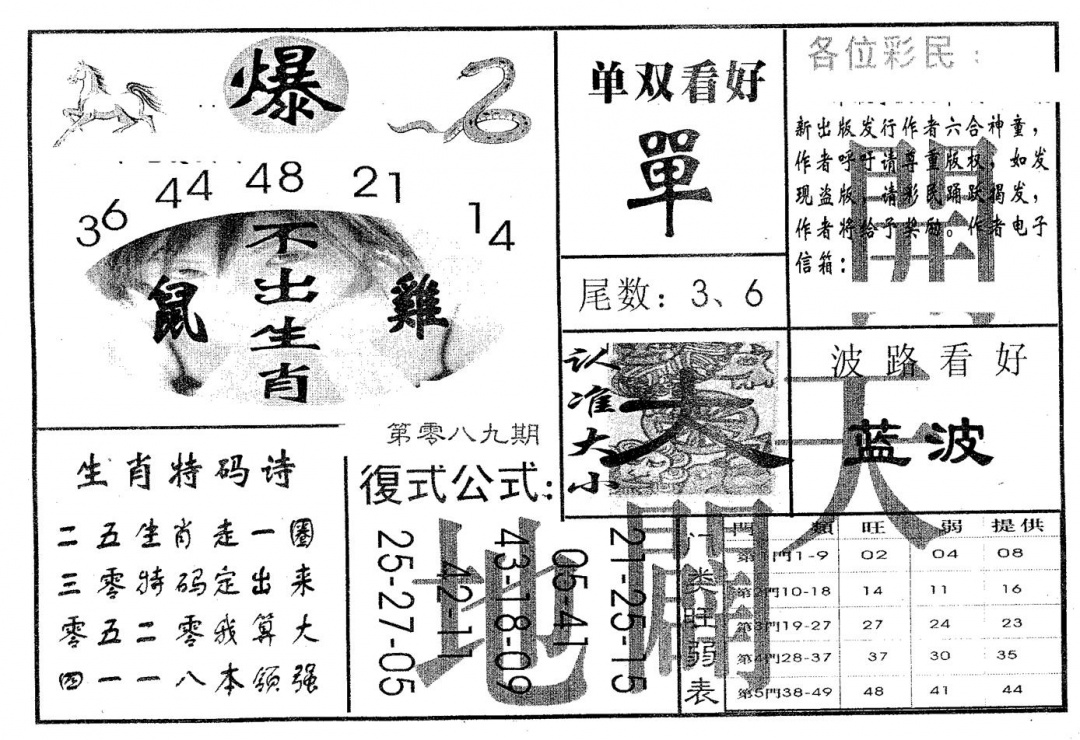 爆
36 44 48 21 14
不出生肖
鼠
雞
单双看好
單
尾数：3、6
各位彩民：
新出版发行作者六合神童，
作者呼吁请尊重版权，如发
现盗版，请彩民踊跃揭发，
作者将给予奖励。作者电子
信箱：
開天
闢地
认准大小
大
波路看好
蓝波
第零八九期
生肖特码诗
二五生肖走一圈
三零特码定出来
零五二零我算大
四一一八本领强
復式公式：
25-27-05
42-11
43-18-09
05-41
21-25-15
门类旺弱表
門類 旺 弱 提供
第1門1-9 02 04 08
第2門10-18 14 11 16
第3門19-27 27 24 23
第4門28-37 37 30 35
第5門38-49 48 41 44